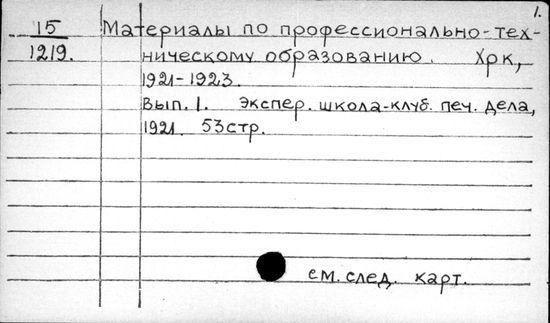 1.
15 Материалы по профессионально-тех-
1219. ническому образованию. Хрк,
1921-1923.
Вып. 1. Экспер. школа-клуб. печ. дела,
1921. 53стр.
см. след. карт.